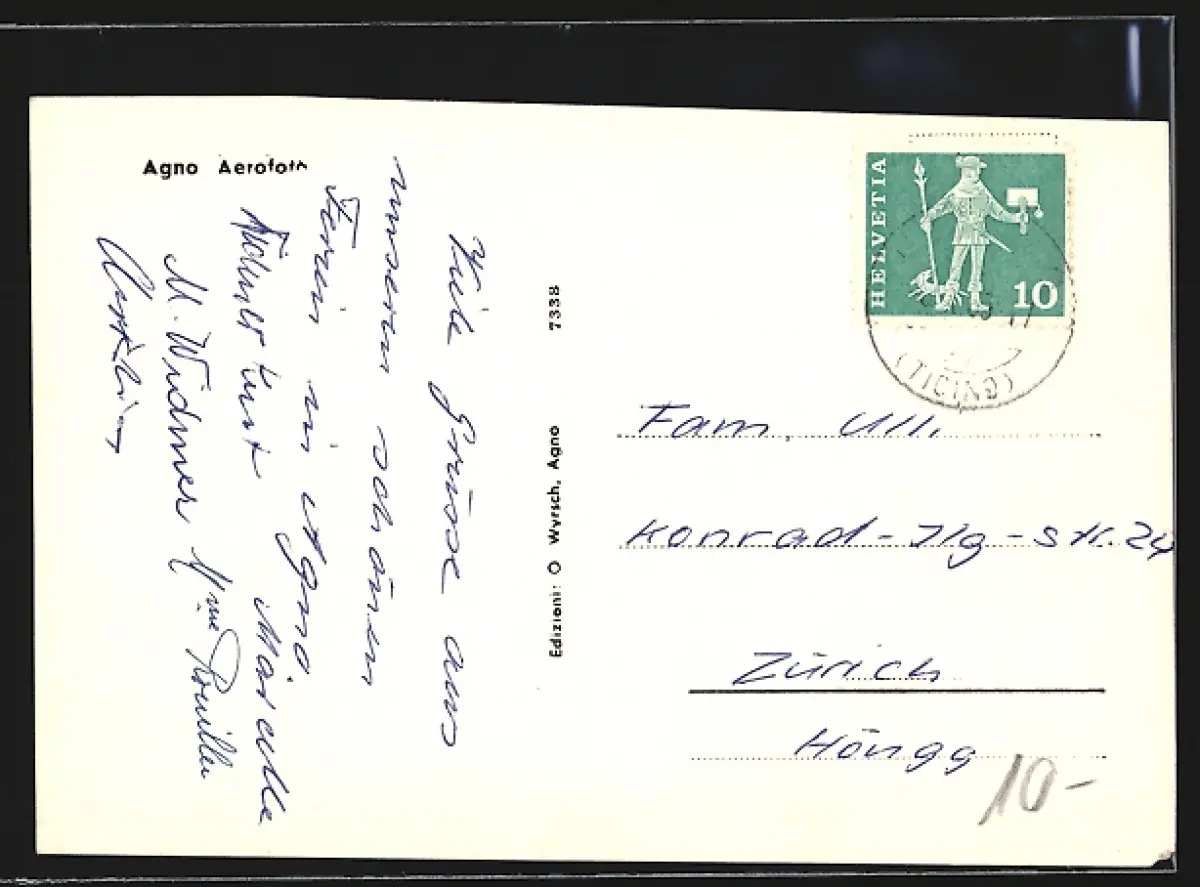 Agno Aerofoto
Viele Grüsse aus
unseren schönen
Ferien in Agno
Kurt Marcelle
M. Widmer Mme Rouiller
Edizioni: O Wyrsch, Agno 7338
HELVETIA
10
(TICINO)
Fam. Ulli
Konrad-Ilg-str. 24
Zürich
Höngg
10-